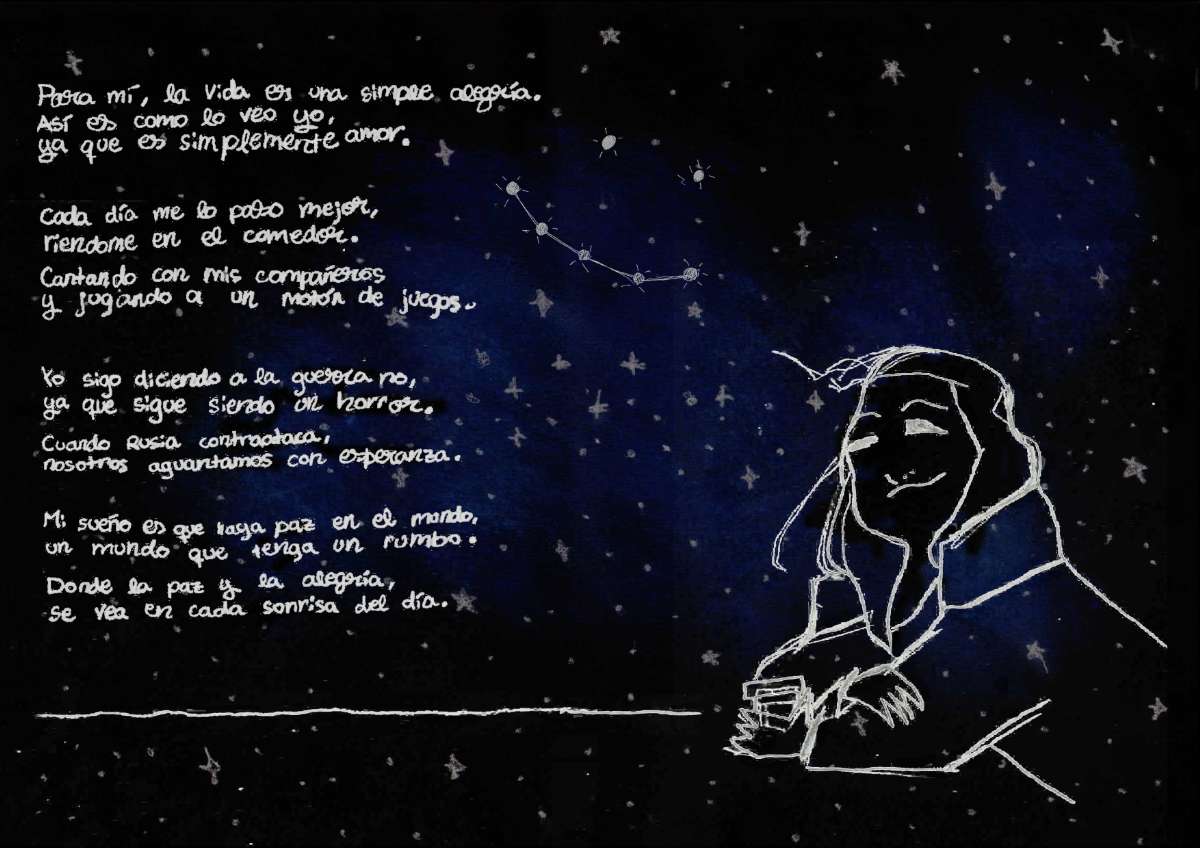 Para mí, la vida es una simple alegría.
Así es como lo veo yo,
ya que es simplemente amor.
Cada día me lo paso mejor,
riendome en el comedor.
Cantando con mis compañeros
y jugando a un montón de juegos.
Yo sigo diciendo a la guerra no,
ya que sigue siendo un horror.
Cuando Rusia contraataca,
nosotros aguantamos con esperanza.
Mi sueño es que haya paz en el mundo,
un mundo que tenga un rumbo.
Donde la paz y la alegría,
se vea en cada sonrisa del día.